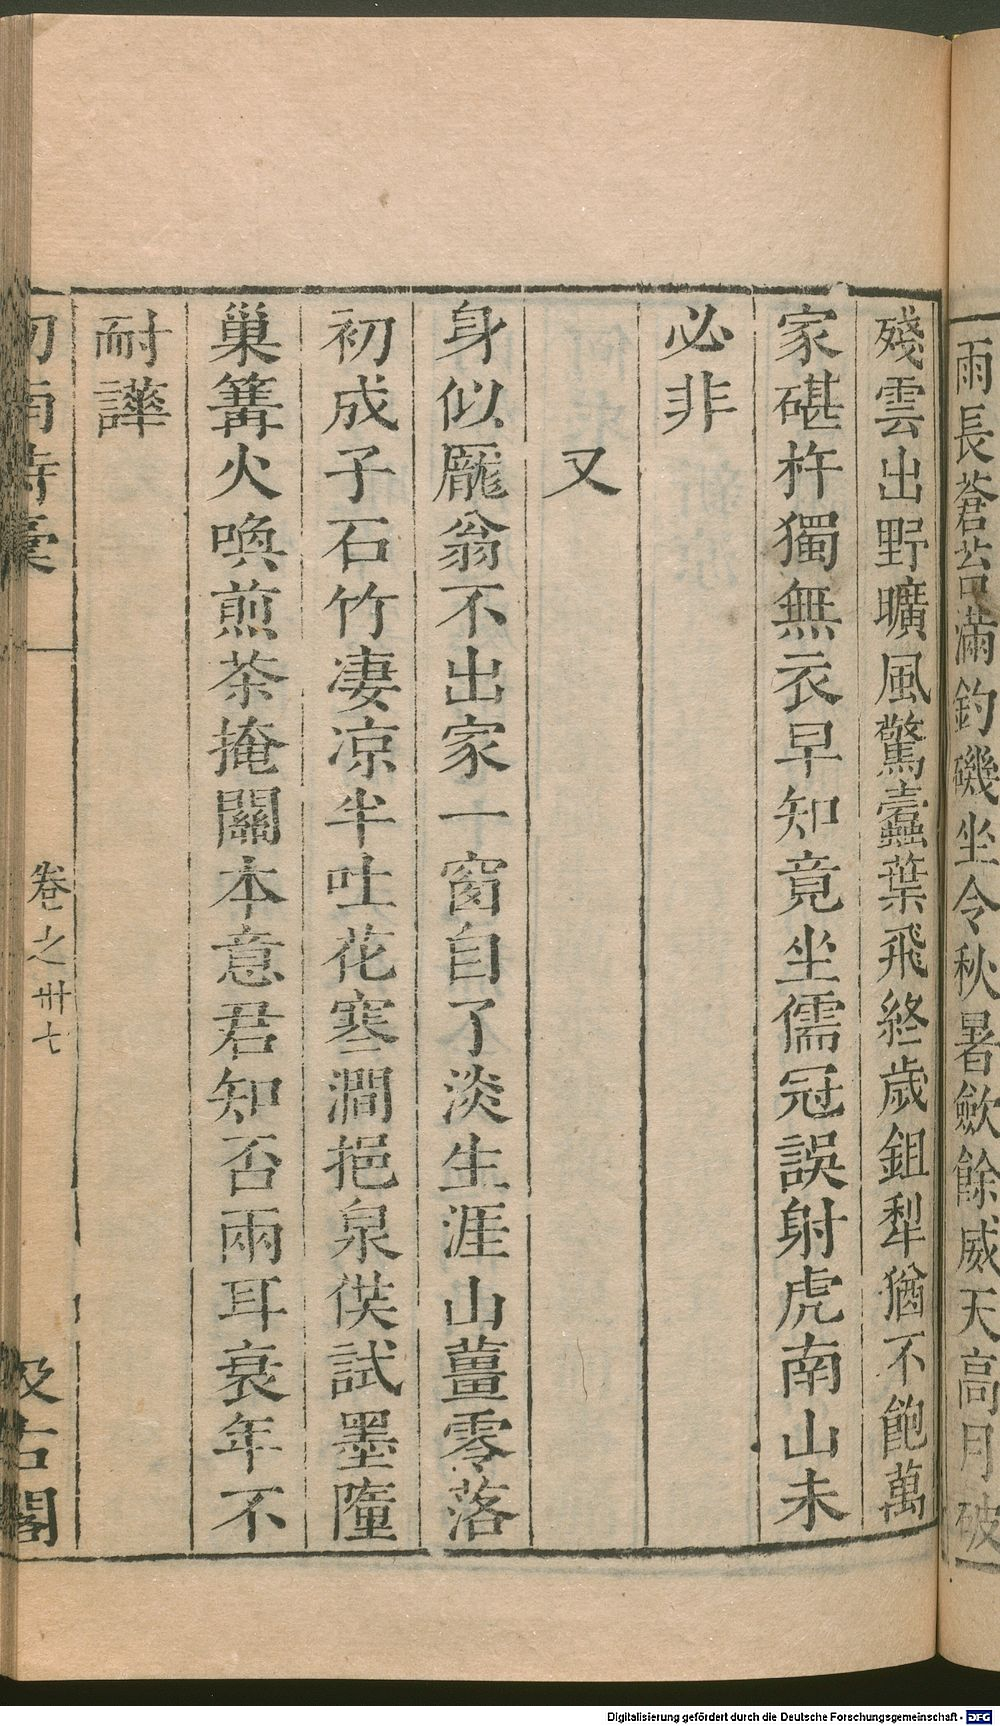 雨長蒼苔滿釣磯坐令秋暑歛餘威天高月破
殘雲出野曠風驚蠹葉飛終歲鉏犁猶不飽萬
家碪杵獨無衣早知竟坐儒冠誤射虎南山未
必非
又
身似龐翁不出家一窗自了淡生涯山薑零落
初成子石竹凄凉半吐花寒澗挹泉供試墨墮
巢篝火喚煎茶掩關本意君知否兩耳衰年不
耐譁
劍南詩稾
卷之卅七
汲古閣
Digitalisierung gefördert durch die Deutsche Forschungsgemeinschaft - DFG